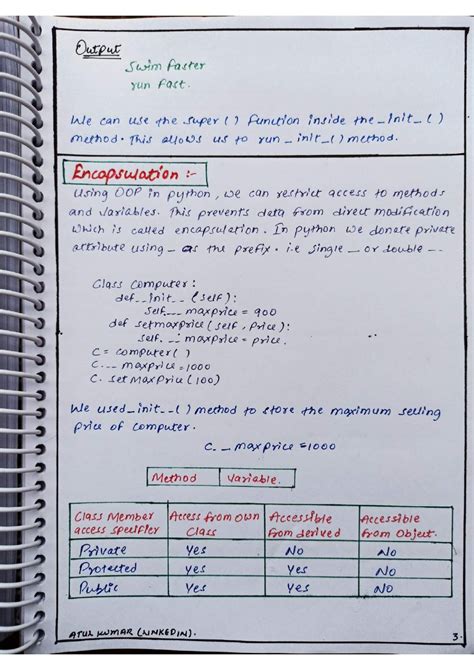 Output
Swim faster
run fast.
We can use the super ( ) function inside the _init_ ( )
method. This allows us to run _init_( ) method.
Encapsulation :-
Using OOP in python, we can restrict access to methods
and variables. This prevents data from direct modification
which is called encapsulation. In python we donate private
attribute using _ as the prefix. i.e single _ or double --
Class Computer:
def__init__ (self):
self.__maxprice = 900
def setmaxprice (self, Price):
self.__maxprice = price.
C = computer( )
C.__maxprice = 1000
C. setMaxPrice (100)
We used_init__( ) method to store the maximum selling
Price of computer.
C._maxprice = 1000
Method Variable.
Class Member access specifier Access from own Class Accessible from derived Accessible from Object.
Private Yes No No
Protected Yes Yes No
Public Yes Yes Yes
ATUL KUMAR (LINKEDIN). 3.